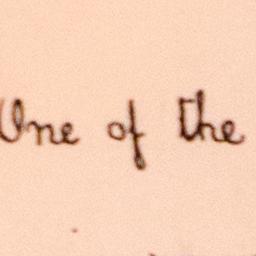 One of the